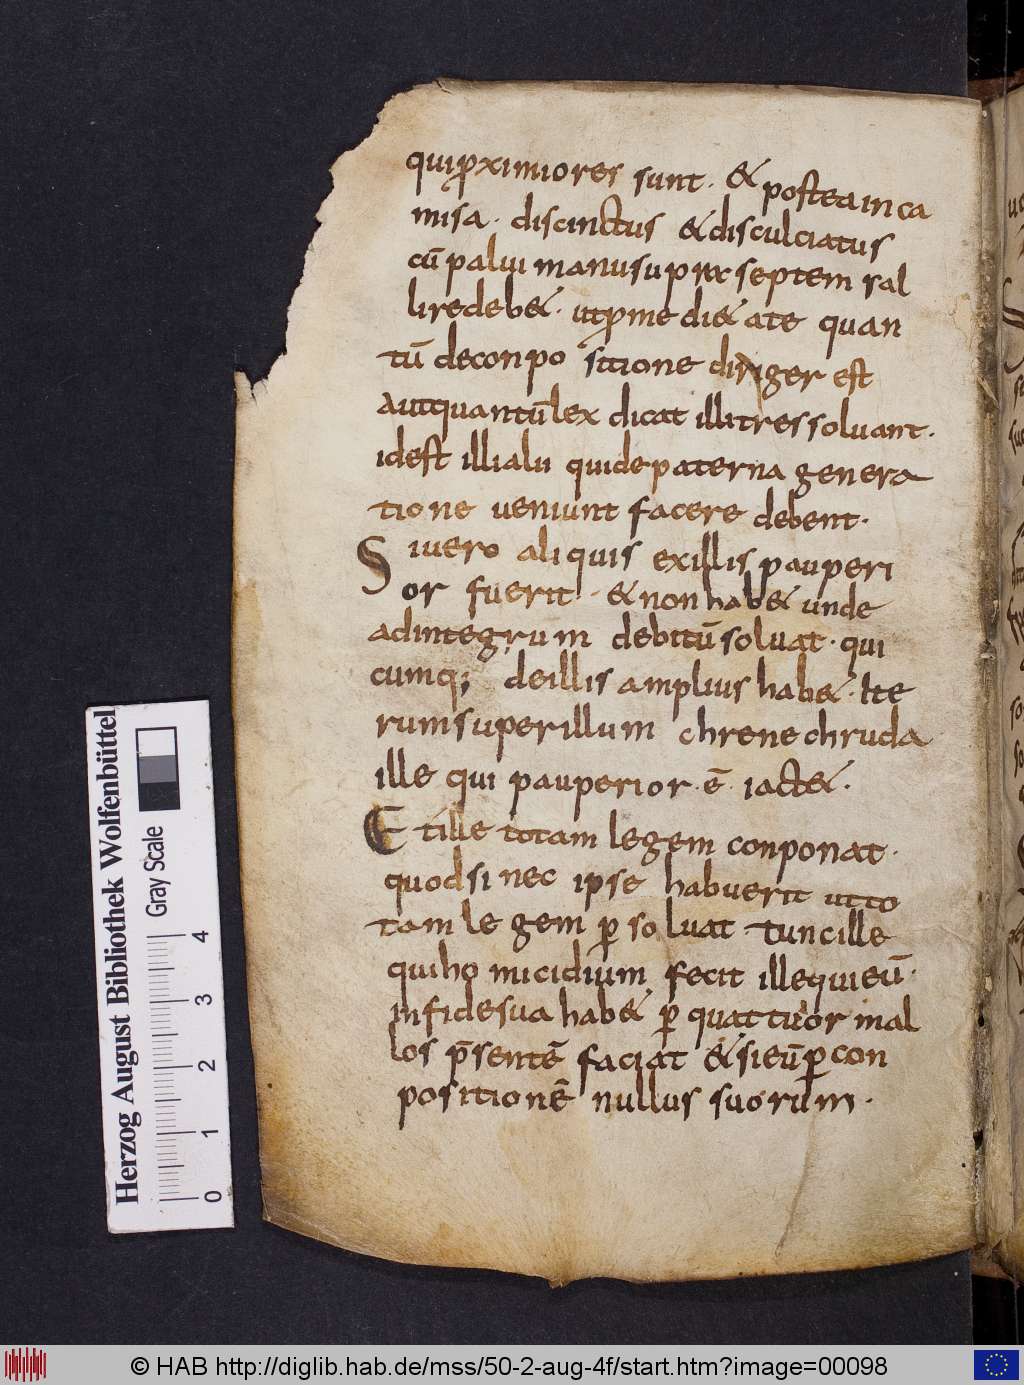 quiꝓximiores sunt · & postea in ca
misa · discinctus & disculciatus
cū palui manu supra septem sal
lire deb& · ut ꝓ medi&ate quan
tū de conpositione diriger est
aut quantū lex dicat illi tres soluant ·
id est illi alii qui de paterna genera
tione ueniunt facere debent ·
Si uero aliquis ex illis pauperi
or fuerit · & non hab& unde
ad integrum debitū soluat · qui
cumq; de illis amplius hab& · Ite
rum super illum chrenechruda
ille qui pauperior · ē · iact& ·
Et ille totam legem conponat ·
quod si nec ipse habuerit ut to
tam legem p̱ soluat · tunc ille
qui homicidium fecit ille qui eū ·
in fide sua hab& p̱ quattuor mal
los p̄sentē faciat & si eū p̱ con
positionē nullus suorum ·
Herzog August Bibliothek Wolfenbüttel
Gray Scale
0 1 2 3 4
© HAB http://diglib.hab.de/mss/50-2-aug-4f/start.htm?image=00098